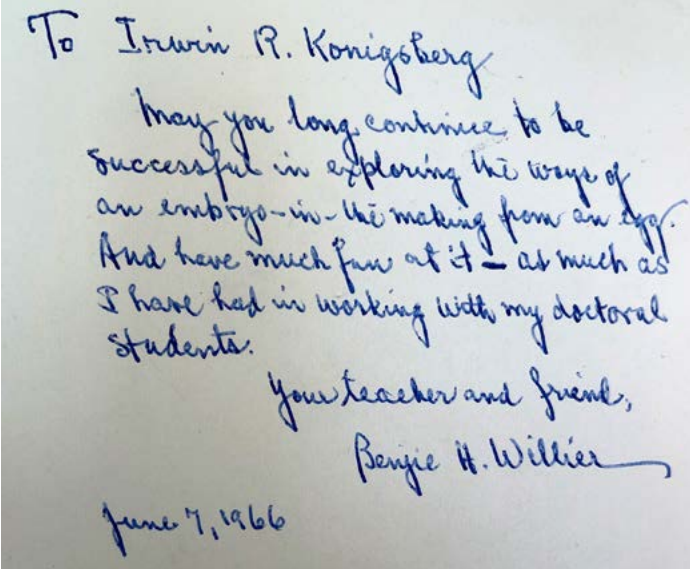 To Irwin R. Konigsberg
May you long continue to be
successful in exploring the ways of
an embryo-in-the making from an egg.
And have much fun at it — as much as
I have had in working with my doctoral
students.
Your teacher and friend,
Benjie H. Willier
June 7, 1966